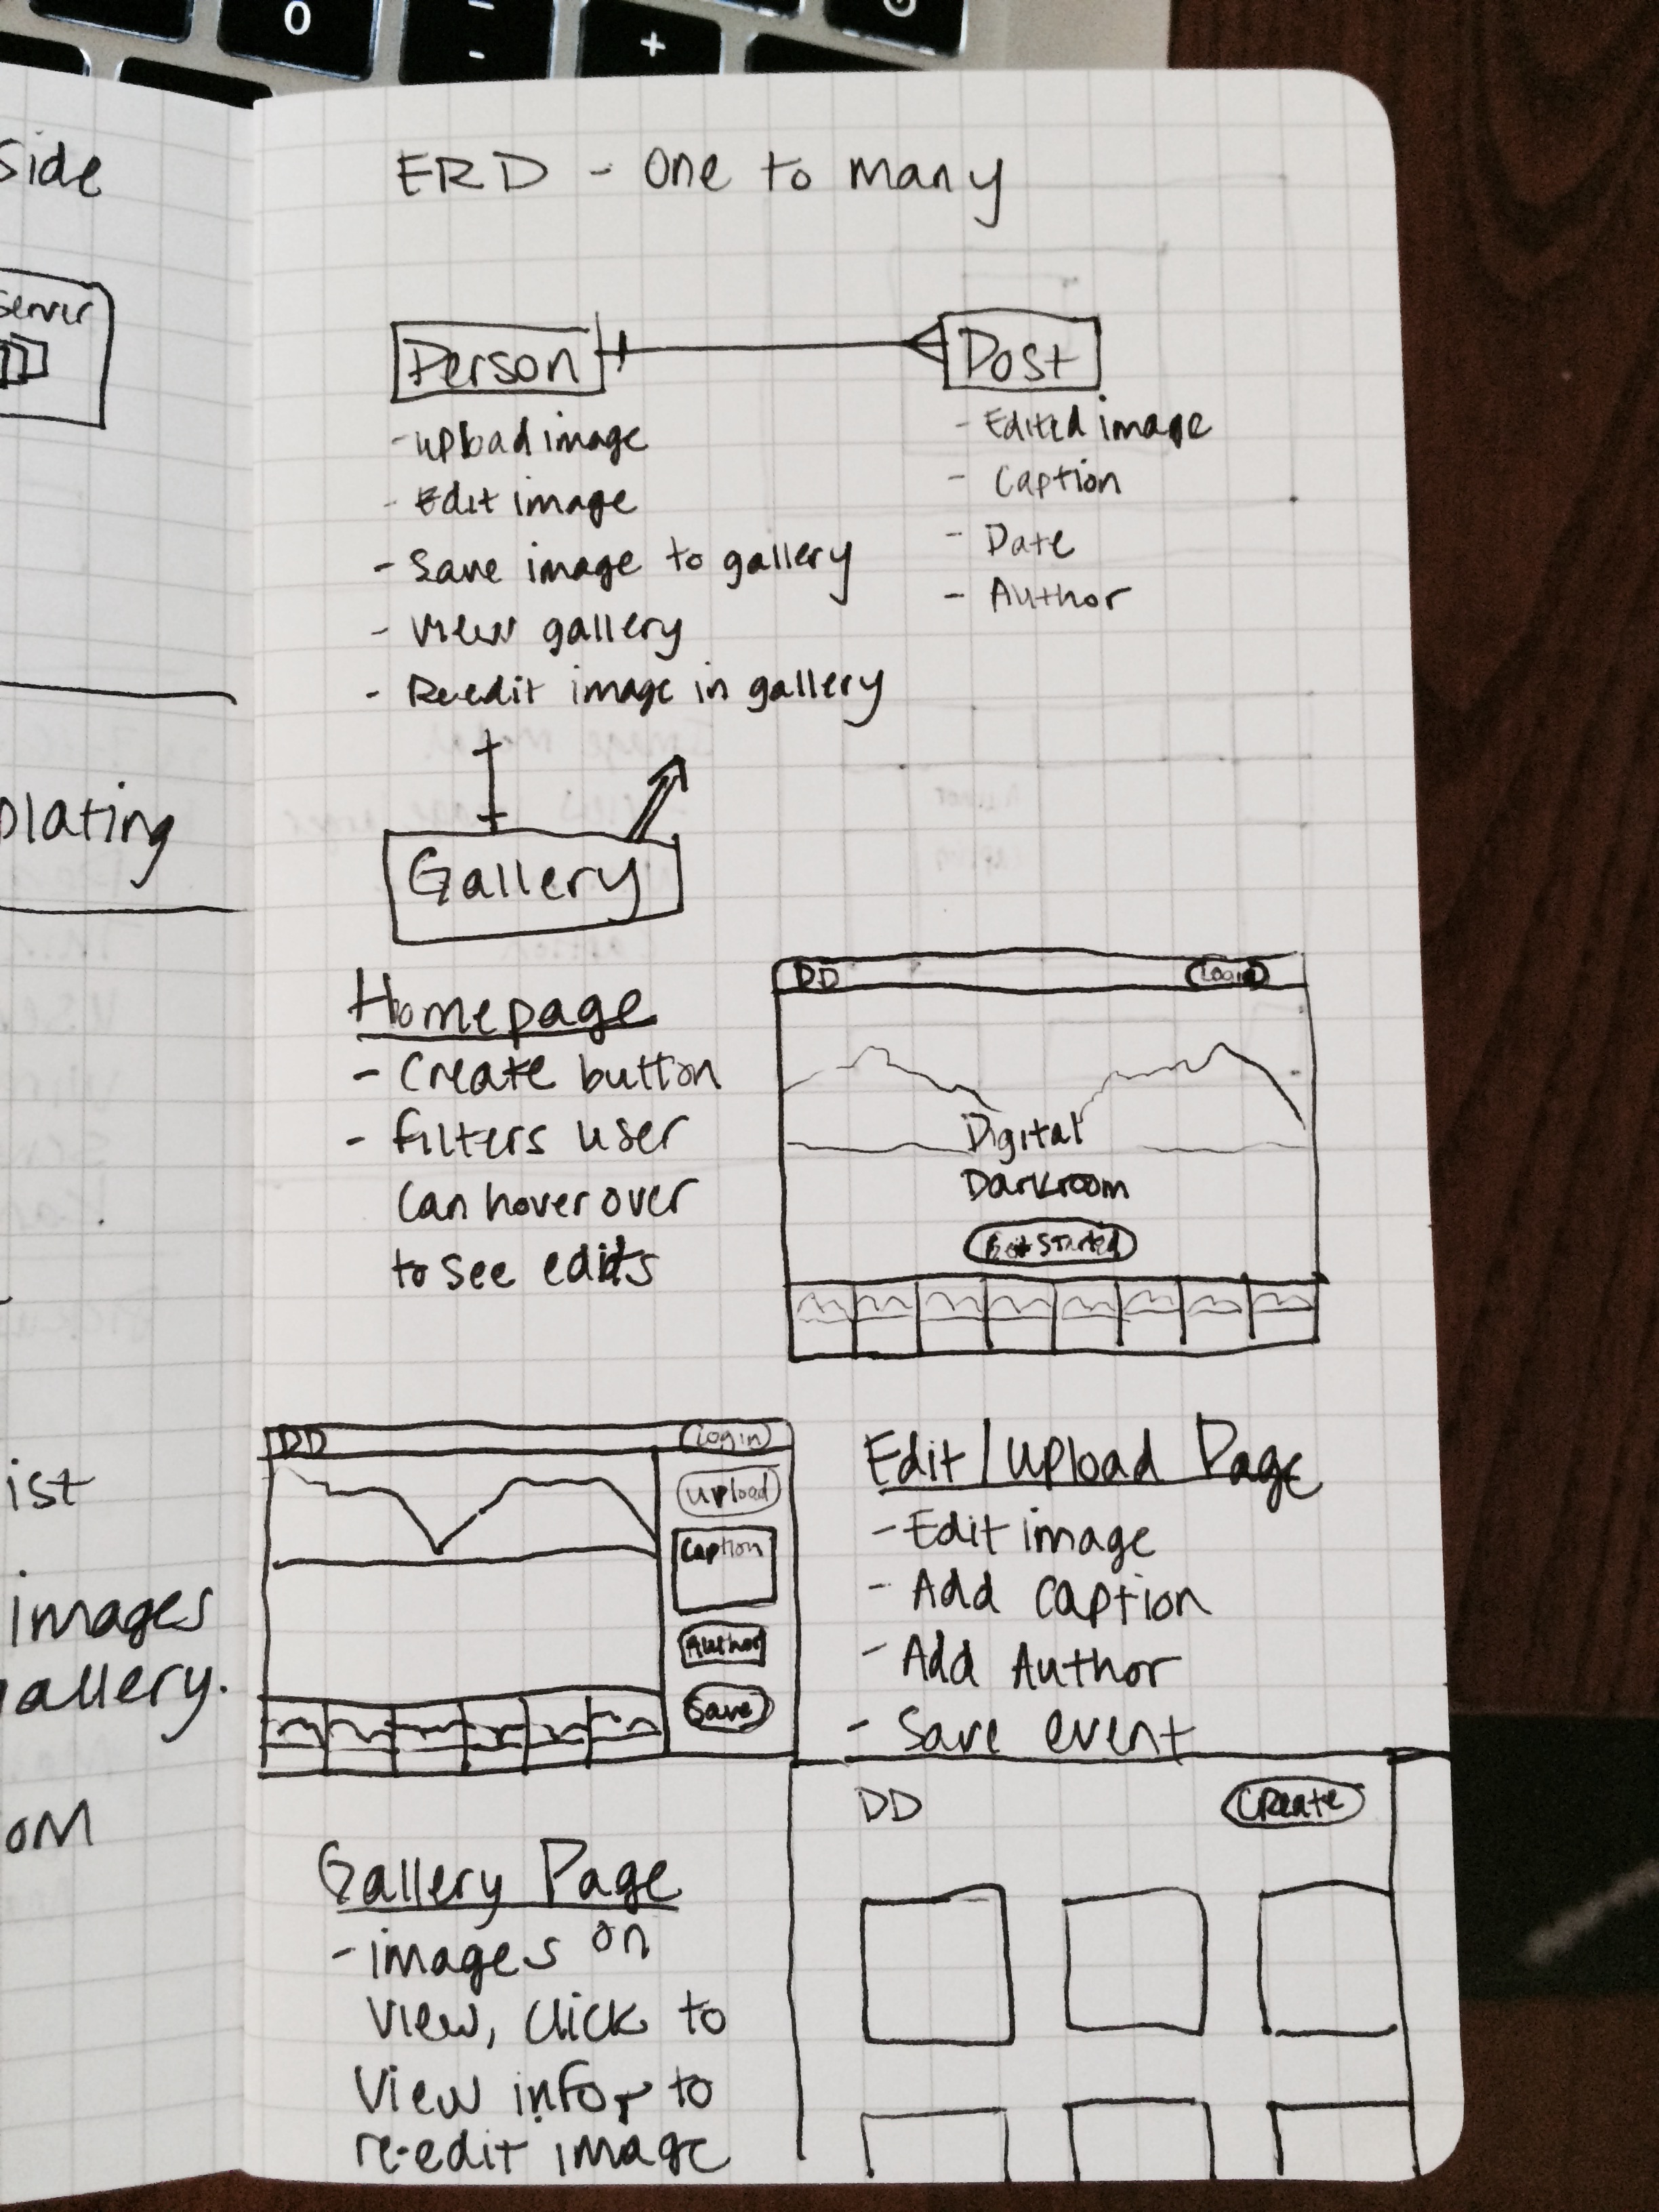 0
-
+
side
Server
plating
ist
images
allery.
OM
ERD - One to many
Person
Post
- upload image
- Edit image
- Save image to gallery
- View gallery
- Re-edit image in gallery
- Edited image
- Caption
- Date
- Author
Gallery
Homepage
- Create button
- filters user
can hover over
to see edits
DD
Login
Digital
Darkroom
Get Started
DD
Login
upload
Caption
Author
Save
Edit/upload Page
- Edit image
- Add caption
- Add Author
- Save event
Gallery Page
- images on
view, click to
view info + to
re-edit image
DD
Create